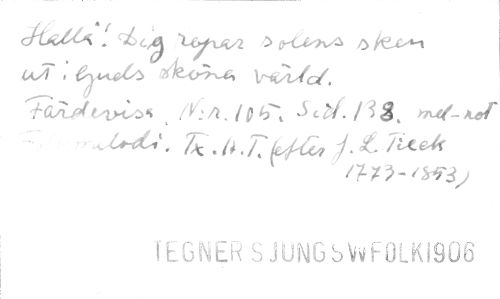 Hallå! Dig ropar solens sken
ut i ljuds sköna värld.
Färdevisa. N:r. 105. Sid. 138. mel-not
melodi. Tx. A.T. (efter J. L. Tieck
1773-1853)
TEGNER SJUNG SVFOLK 1906